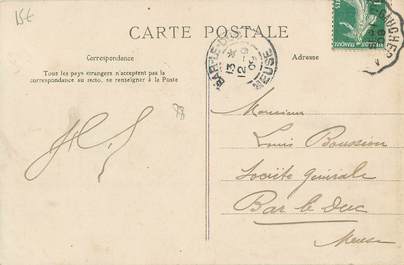 15€
CARTE POSTALE
Correspondance
Tous les pays étrangers n'acceptent pas la
correspondance au recto, se renseigner à la Poste
Adresse
BAR-LE-D
MEUSE
78
Monsieur
Louis Boussion
Société Générale
Bar le Duc
Meuse